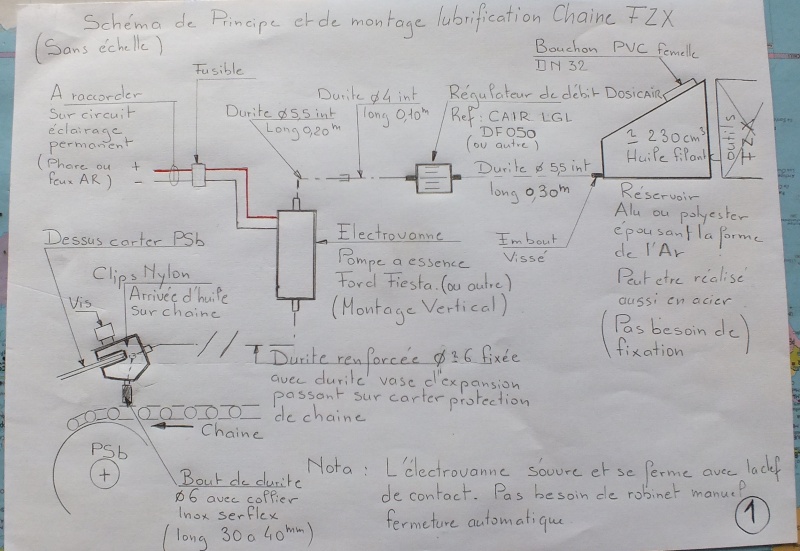 Schéma de Principe et de montage lubrification Chaine FZX
(Sans échelle)
Bouchon PVC femelle
DN 32
Fusible
A raccorder
Sur circuit
éclairage
permanent
(Phare ou
feux AR)
+
-
Durite Ø5,5 int
Long 0,20m
Durite Ø4 int
long 0,10m
Régulateur de débit DOSICAIR
Ref: CAIR LGL
DF050
(ou autre)
Durite Ø 5,5 int
long 0,30m
≃ 230cm³
Huile filante
Outils
FZX
Réservoir
Alu ou polyester
épousant la forme
de l'Ar
Peut etre réalisé
aussi en acier.
(Pas besoin de
fixation)
Embout
Vissé
Electrovanne
Pompe a essence
Ford Fiesta. (ou autre)
(Montage Vertical)
Dessus carter PSb
Clips Nylon
Arrivée d'huile
sur chaine
Vis
Durite renforcée Ø ≃ 6 fixée
avec durite vase d'expansion
passant sur carter protection
de chaine
Chaine
PSb
+
Bout de durite
Ø6 avec collier
Inox serflex
(long 30 a 40mm)
Nota : L'électrovanne s'ouvre et se ferme avec la clef
de contact. Pas besoin de robinet manuel
fermeture automatique.
1